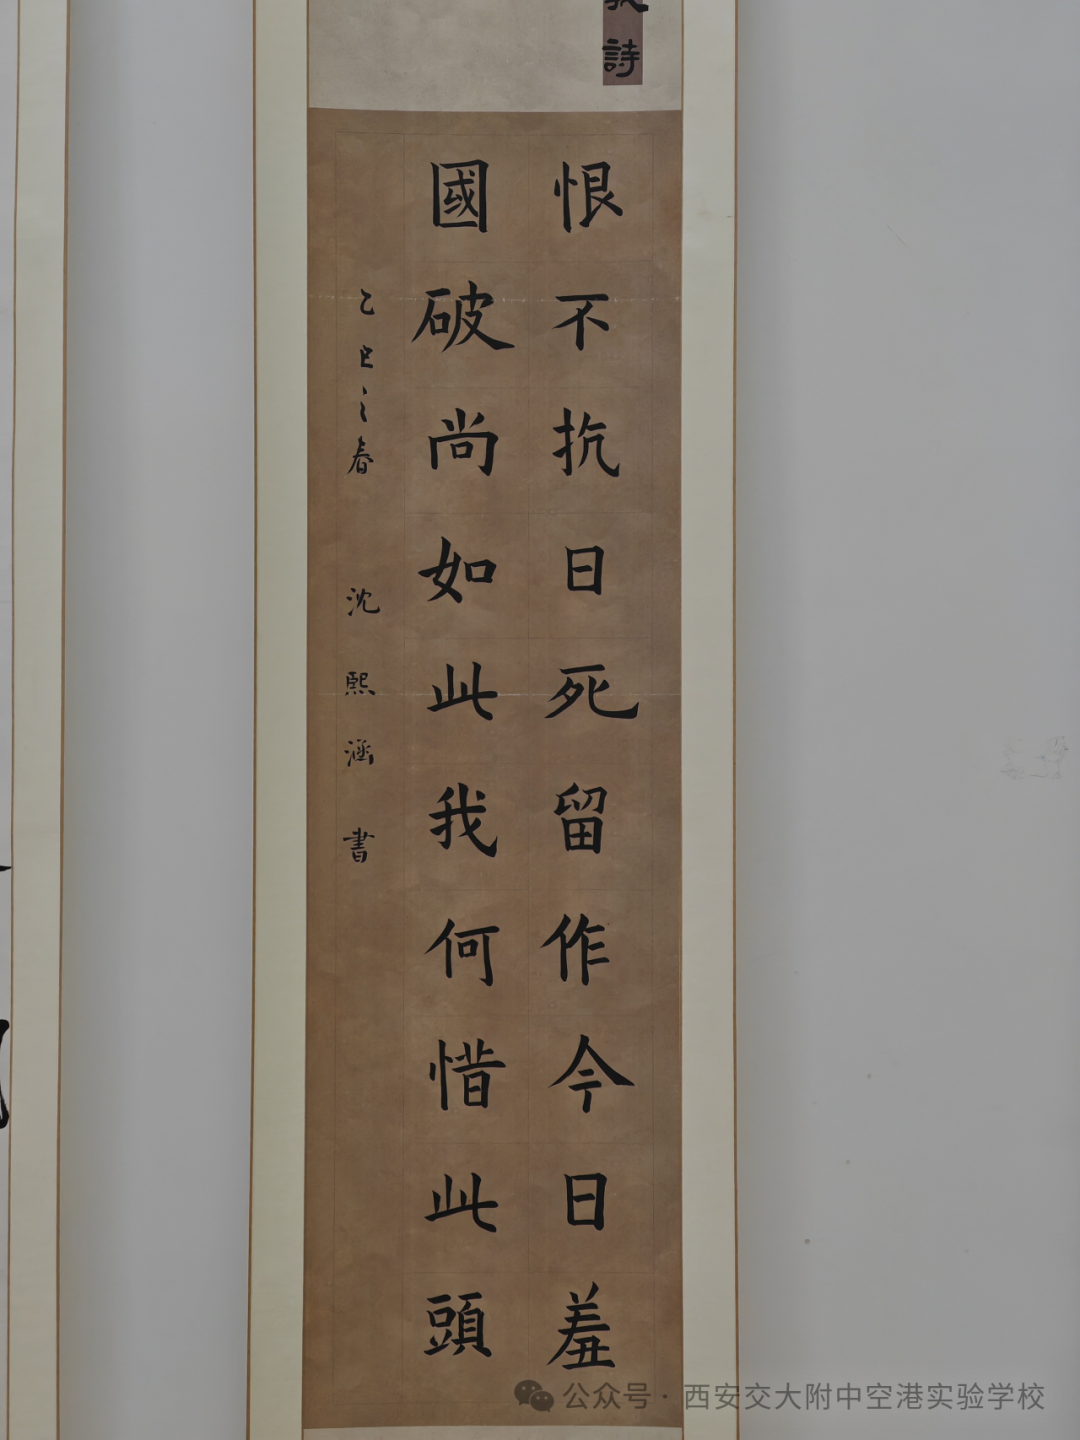 詩
恨不抗日死留作今日羞
國破尚如此我何惜此頭
乙巳之春 沈熙涵書
公众号·西安交大附中空港实验学校